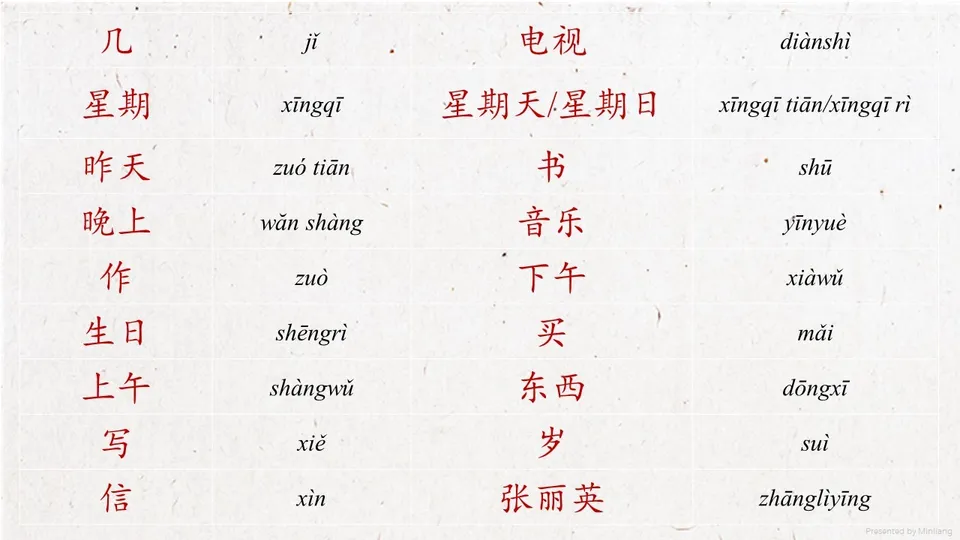 几 jǐ 电视 diànshì
星期 xīngqī 星期天/星期日 xīngqī tiān/xīngqī rì
昨天 zuó tiān 书 shū
晚上 wǎn shàng 音乐 yīnyuè
作 zuò 下午 xiàwǔ
生日 shēngrì 买 mǎi
上午 shàngwǔ 东西 dōngxī
写 xiě 岁 suì
信 xìn 张丽英 zhānglìyīng
Presented by Minliang